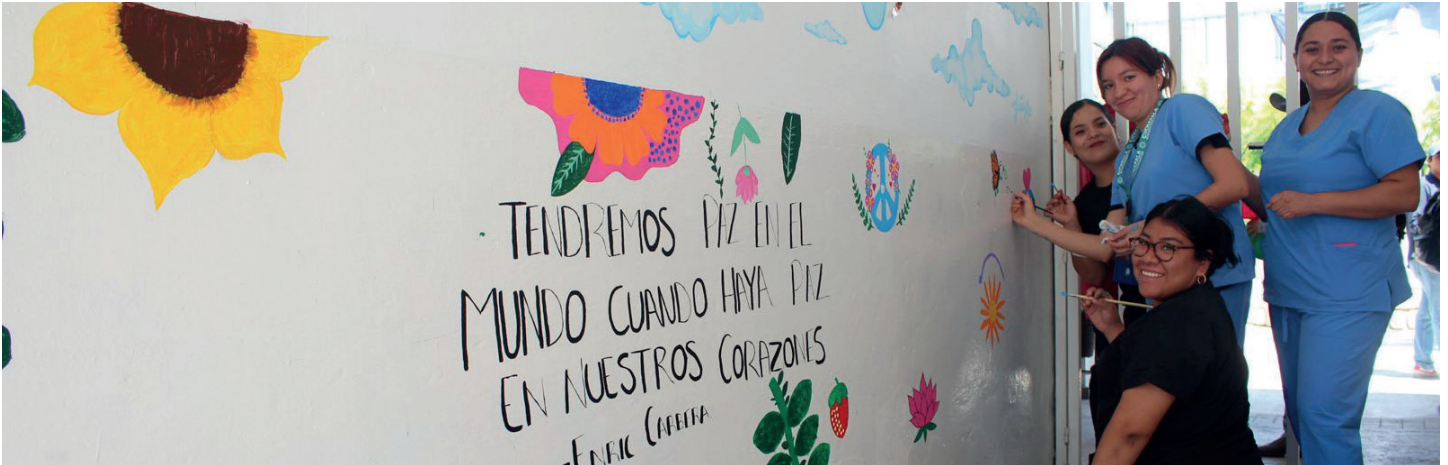 TENDREMOS PAZ EN EL
MUNDO CUANDO HAYA PAZ
EN NUESTROS CORAZONES
-ENRIC CARBERA